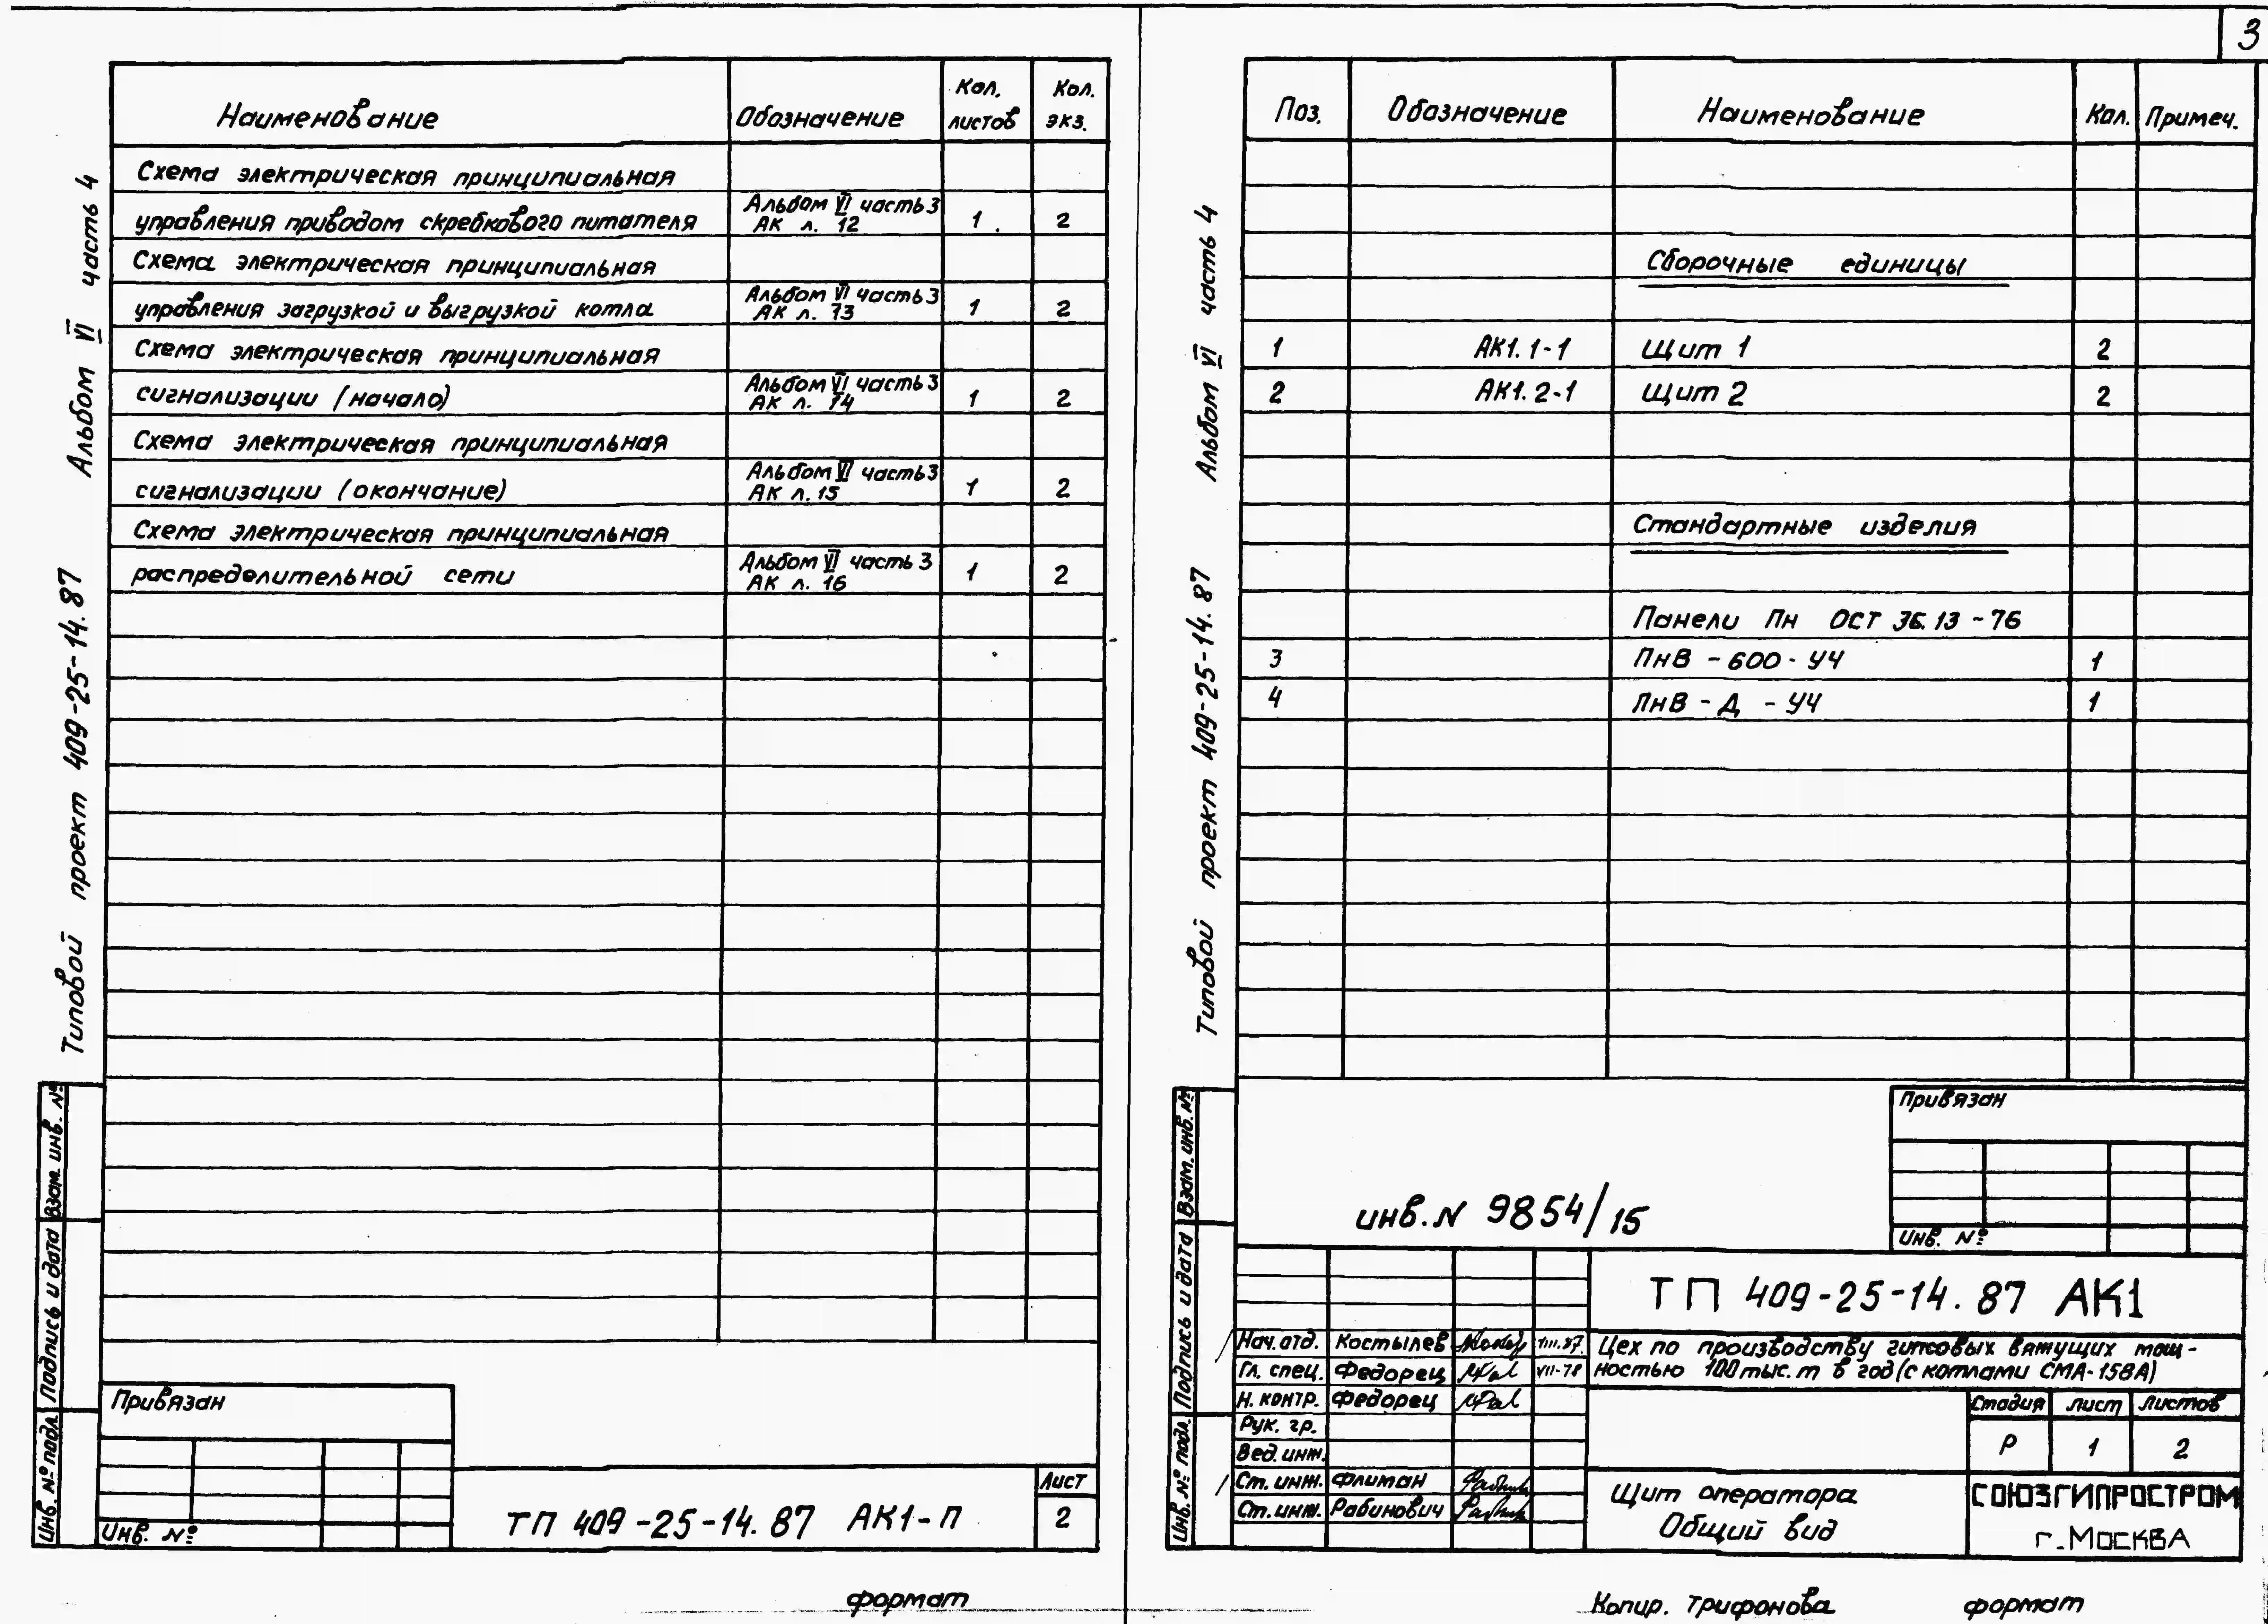 3
Типовой проект 409-25-14.87 Альбом VI часть 4
Наименование Обозначение Кол. листов Кол. экз.
Схема электрическая принципиальная
управления приводом скребкового питателя Альбом VI часть 3 АК л. 12 1 2
Схема электрическая принципиальная
управления загрузкой и выгрузкой котла Альбом VI часть 3 АК л. 13 1 2
Схема электрическая принципиальная
сигнализации (начало) Альбом VI часть 3 АК л. 14 1 2
Схема электрическая принципиальная
сигнализации (окончание) Альбом VI часть 3 АК л. 15 1 2
Схема электрическая принципиальная
распределительной сети Альбом VI часть 3 АК л. 16 1 2
Инв. № подл. Подпись и дата Взам. инв. №
Привязан
Инв. №
ТП 409-25-14.87 АК1-П
Лист
2
формат
Типовой проект 409-25-14.87 Альбом VI часть 4
Поз. Обозначение Наименование Кол. Примеч.
Сборочные единицы
1 АК1.1-1 Щит 1 2
2 АК1.2-1 Щит 2 2
Стандартные изделия
Панели Пн ОСТ 36.13-76
3 ПнВ-600-УЧ 1
4 ПнВ-Д-УЧ 1
Инв. № подл. Подпись и дата Взам. инв. №
Привязан
Инв. №
инв. N 9854/15
ТП 409-25-14.87 АК1
Нач. отд. Костылев VIII.87.
Гл. спец. Федорец VII-78
Н. контр. Федорец
Рук. гр.
Вед. инж.
Ст. инж. Флитан
Ст. инж. Рабинович
Цех по производству гипсовых вяжущих мощ-
ностью 100 тыс. т в год (с котлами СМА-158А)
Стадия Лист Листов
Р 1 2
Щит оператора
Общий вид
СОЮЗГИПРОСТРОМ
г. Москва
Копир. Трифонова формат